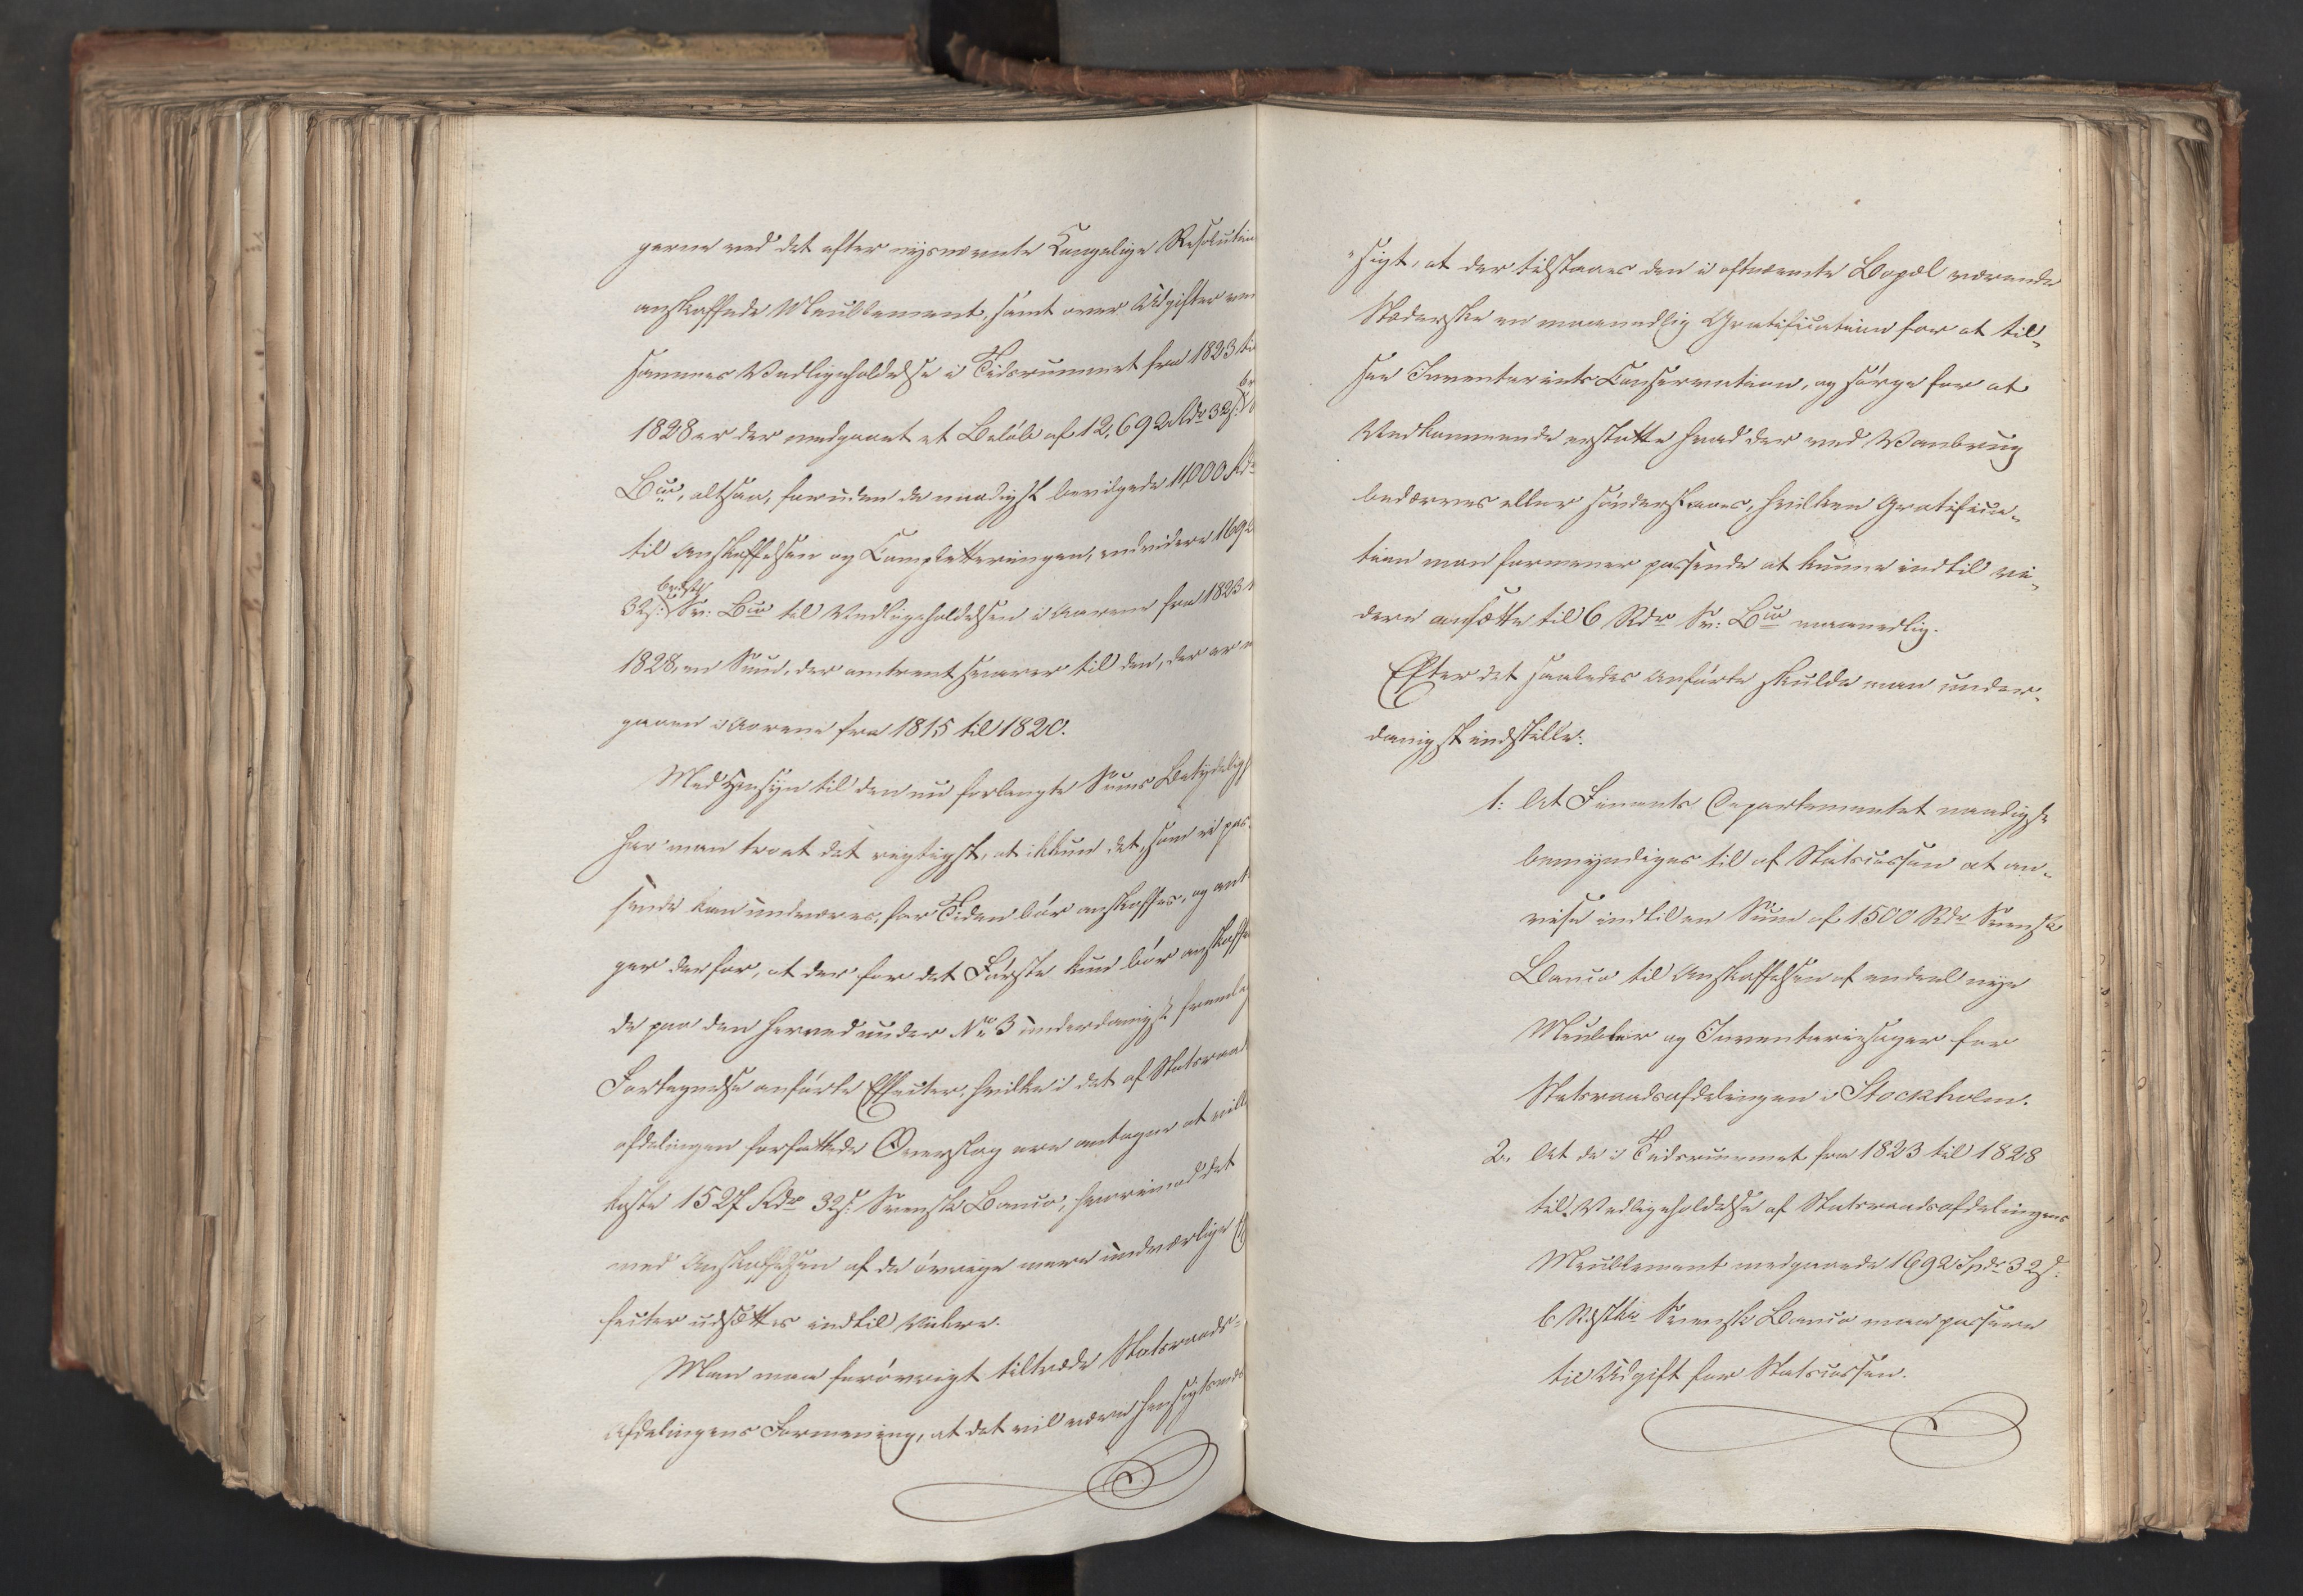 gerne ved det efter nysnævnte Kongelige Resolution
anskaffede Meublement, samt over Udgifter ved
sammes Vedligeholdelse i Tidsrummet fra 1823 til
1828 er der medgaaet et Beløb af 12,692 Rdr 32 s.
Bco, altsaa, foruden de naadigst bevilgede 11,000 Rdr
til Anskaffelsen og Completteringen, endvidere 1692
32 s. Sv: Bco til Vedligeholdelsen i Aarene fra 1823
1828, en Sum, der omtrent svarer til den, der er
gaaen i Aarene fra 1815 til 1820.
Med Hensyn til den nu forlangte Sums Betydelig
har man troet det rigtigst, at ikkun det, som ei pas-
sende kan undværes, for Tiden bør anskaffes, og ant
ger derfor, at der for det Første kun bør anskaffe
de paa den herved under No 3 underdanigst fremlag
Fortegnelse anførte Effecter, hvilke i det af Statsraad
afdelingen forfattede Overslag ere antagne at ville
koste 1527 Rdr 32 s. Svenske Banco, hvorimod det
med Anskaffelsen af de øvrige mere undværlige Ef
fecter udsættes indtil Videre.
Man maa forøvrigt tiltræde Statsraads-
Afdelingens Formening, at det vil være hensigtsmæs
sigt, at der tilstaaes den i oftnævnte Bopæl værende
Stæderske en maanedlig Gratification for at til-
see Inventariets Conservation, og sørge for at
Vedkommende erstatte hvad der ved Vanbrug
bedærves eller sønderslaaes, hvilken Gratifica-
tion man formener passende at kunne indtil vi-
dere ansætte til 6 Rdr Sv: Bco maanedlig.
Efter det saaledes Anførte skulde man under-
danigst indstille:
1: At Finants Departementet naadigst
bemyndiges til af Statscassen at an-
vise indtil en Sum af 1500 Rdr Svensk
Banco til Anskaffelsen af endeel nye
Meubler og Inventariesager for
Statsraadsafdelingen i Stockholm.
2. At de i Tidsrummet fra 1823 til 1828
til Vedligeholdelse af Statsraadsafdelingens
Meublement medgaaede 1692 Spdr 32 s.
6 Rdstk Svensk Banco maa passere
til Udgift for Statscassen.